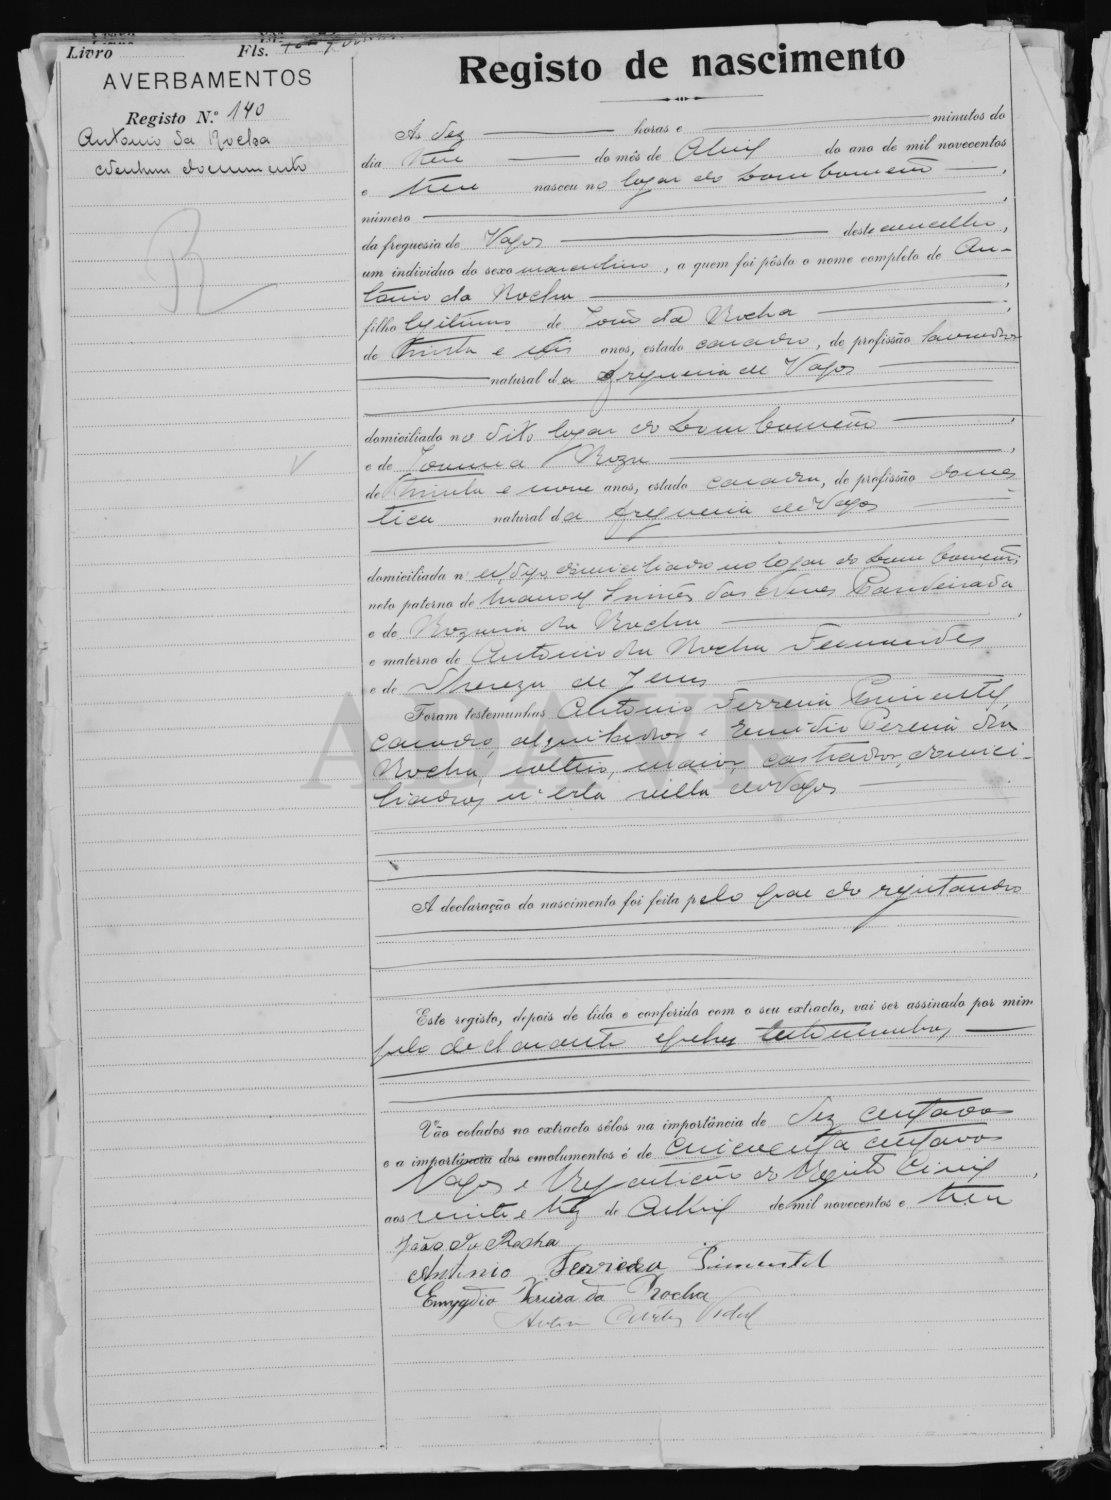 Livro Fls.
AVERBAMENTOS
Registo N.º 140
Antonio da Rocha
Nenhum documento
Registo de nascimento
Ás dez horas e minutos do
dia do mês de Abril do ano de mil novecentos
e treze nasceu no logar do Lombomeão,
número
da freguesia de Vagos deste concelho,
um individuo do sexo masculino, a quem foi pôsto o nome completo de An-
tonio da Rocha,
filho legitimo de João da Rocha,
de trinta e seis anos, estado casado, de profissão lavrador
natural da freguesia de Vagos
domiciliado no dito logar do Lombomeão,
e de Joanna Roza,
de trinta e nove anos, estado casada, de profissão domes
tica natural da freguesia de Vagos
domiciliada n domiciliado no logar do Lombomeão;
neto paterno de Manoel Simões das Neves Bandeirada
e de Rozaria da Rocha,
e materno de Antonio da Rocha Fernandes
e de Thereza de Jesus
Foram testemunhas Antonio Ferreira Pimentel,
casado, alquilador e Emidio Pereira da
Rocha, solteiro, maior, castrador, domici-
liados n'esta villa de Vagos
ADAVR
A declaração do nascimento foi feita pelo pae do registando
Este registo, depois de lido e conferido com o seu extracto, vai ser assinado por mim
pelo declarante e pelas testemunhas,
Vão colados no extracto sêlos na importância de dez centavos
e a importância dos emolumentos é de cincoenta centavos
Vagos e Repartição do Registo Civil,
aos vinte e trez de Abril de mil novecentos e treze
João da Rocha
Antonio Ferreira Pimentel
Emygdio Pereira da Rocha
Vidal